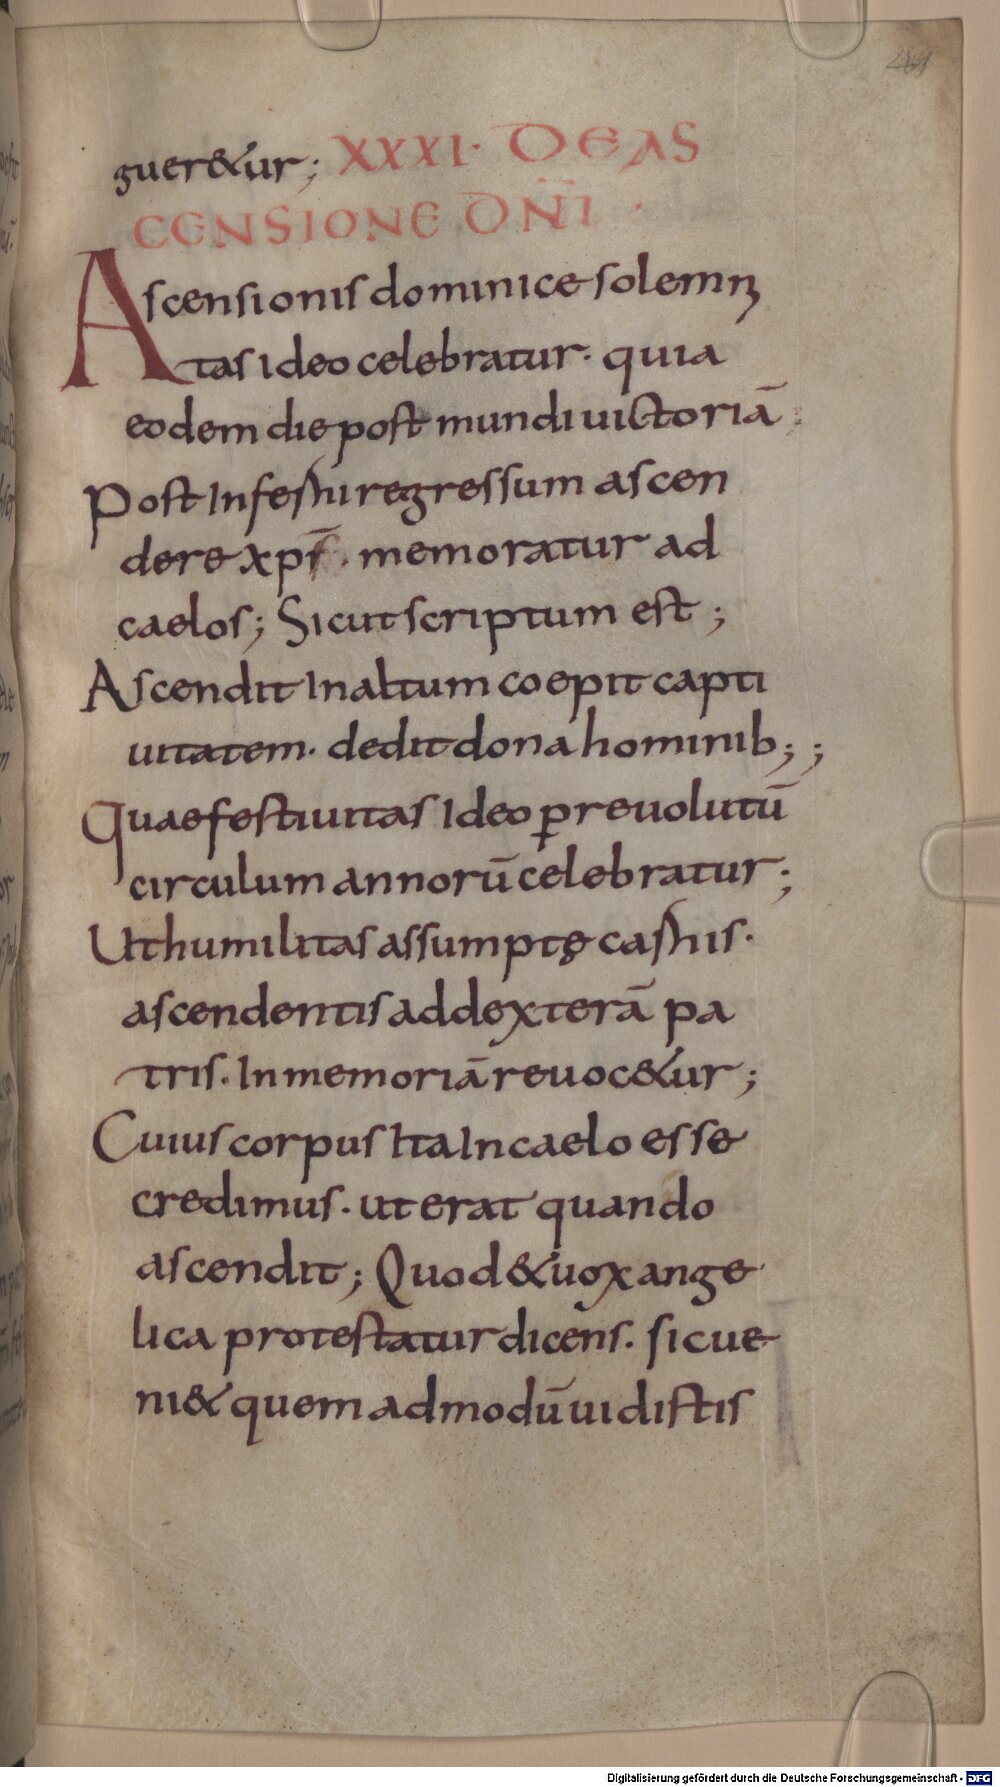 guer&ur; XXXI· DE AS
CENSIONE DN̄I ·
Ascensionis dominice solemni
tas Ideo celebratur· quia
eodem die post mundi uictoriā
Post Inferni regressum ascen
dere xps̄· memoratur ad
caelos; Sicut scriptum est;
Ascendit In altum coepit capti
uitatem· dedit dona hominib;;
Quae festiuitas Ideo ꝑ reuolutū
circulum annorū celebratur;
Ut humilitas assumptę carnis·
ascendentis ad dexterā pa
tris· In memoriā reuoc&ur;
Cuius corpus Ita In caelo esse
credimus· ut erat quando
ascendit; Quod & uox ange
lica protestatur dicens· sic ue
ni& quem ad modū uidistis
Digitalisierung gefördert durch die Deutsche Forschungsgemeinschaft - DFG